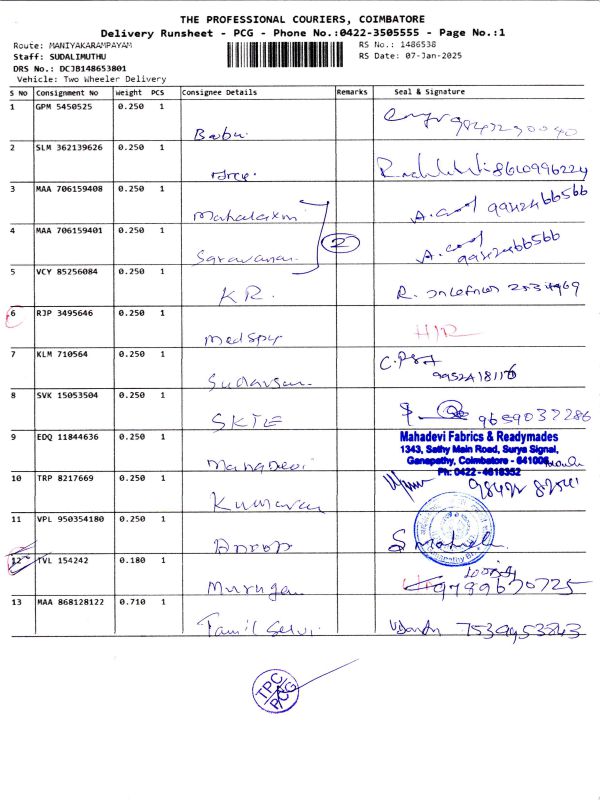 THE PROFESSIONAL COURIERS, COIMBATORE
Delivery Runsheet - PCG - Phone No.:0422-3505555 - Page No.:1
Route: MANIYAKARAMPAYAM RS No.: 1486538
Staff: SUDALIMUTHU RS Date: 07-Jan-2025
DRS No.: DCJB148653801
Vehicle: Two Wheeler Delivery
S No Consignment No Weight PCS Consignee Details Remarks Seal & Signature
1 GPM 5450525 0.250 1
Babu
2 SLM 362139626 0.250 1
8610996224
3 MAA 706159408 0.250 1
Mahalaxmi A. 9942466566
4 MAA 706159401 0.250 1
Saravanan 2 A. 9942466566
5 VCY 85256084 0.250 1
KR. R.
6 RJP 3495646 0.250 1
Medspy H/R
7 KLM 710564 0.250 1
Sudarsan
8 SVK 15053504 0.250 1
SKTE 9659037286
9 EDQ 11844636 0.250 1
Mahadevi Fabrics & Readymades
1343, Sathy Main Road, Surya Signal,
Ganapathy, Coimbatore - 641006
Ph: 0422 - 4616352
Mahadevi
10 TRP 8217669 0.250 1
Kumaran
11 VPL 950354180 0.250 1
12 TVL 154242 0.180 1
Murugan 9789670725
13 MAA 868128122 0.710 1
Tamil Selvi 7539953843
TPC
PCG